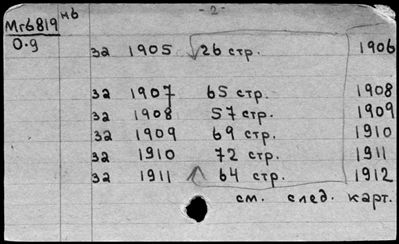 - 2 -
Мг6819 нб
0.9
за 1905 26 стр. 1906
за 1907 65 стр. 1908
за 1908 57 стр. 1909
за 1909 69 стр. 1910
за 1910 72 стр. 1911
за 1911 64 стр. 1912
см. след. карт.